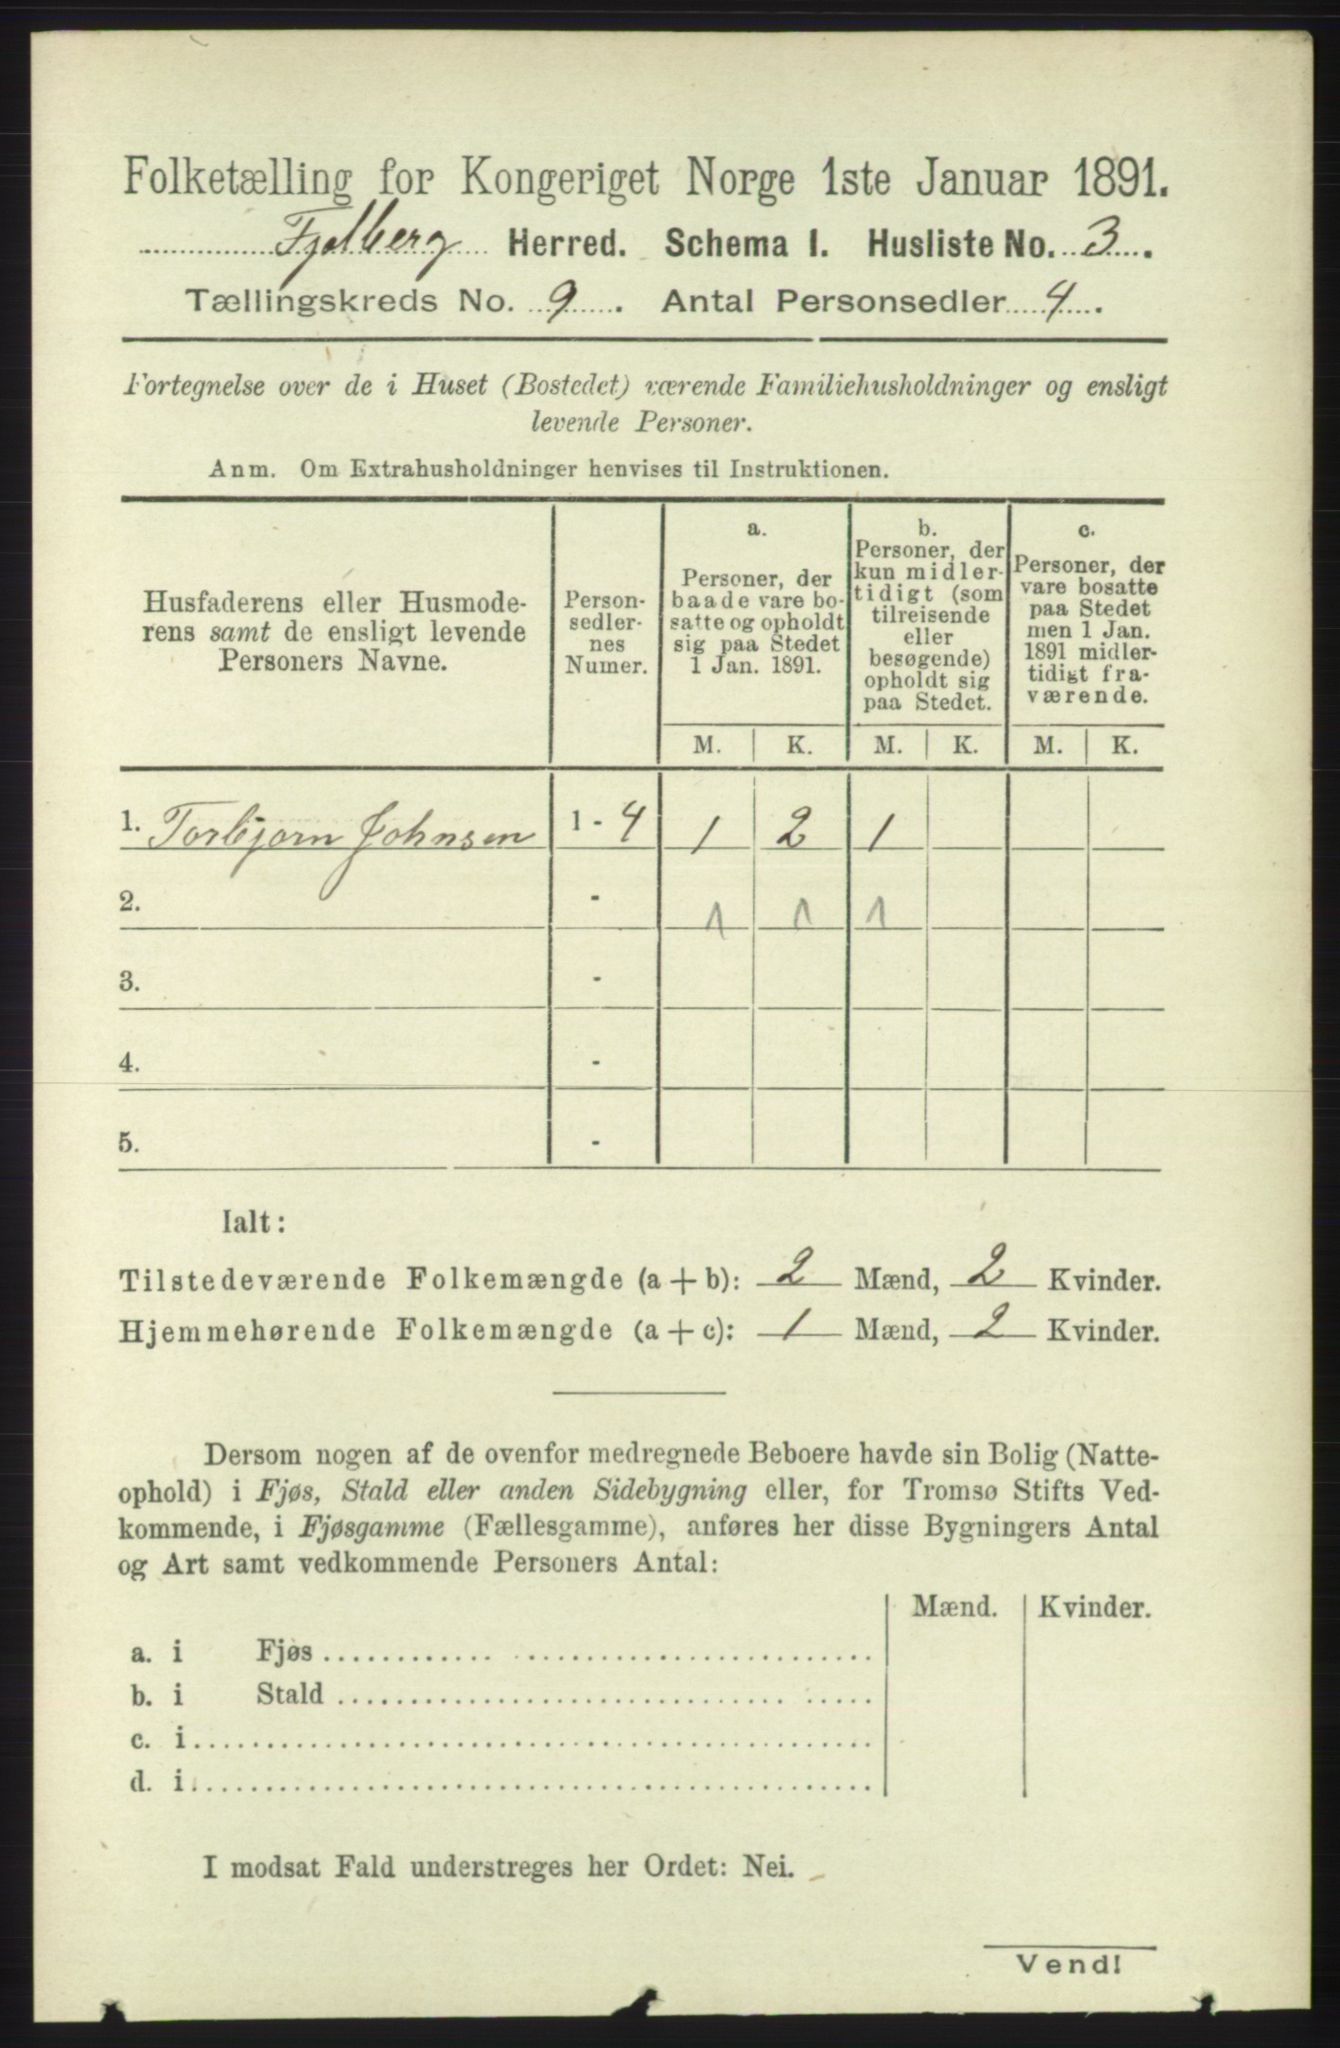 Folketælling for Kongeriget Norge 1ste Januar 1891.
Fjelberg Herred. Schema I. Husliste No. 3.
Tællingskreds No. 9. Antal Personsedler 4.
Fortegnelse over de i Huset (Bostedet) værende Familiehusholdninger og ensligt
levende Personer.
Anm. Om Extrahusholdninger henvises til Instruktionen.
Husfaderens eller Husmode-
rens samt de ensligt levende
Personers Navne.
Person-
sedler-
nes
Numer.
a.
Personer, der
baade vare bo-
satte og opholdt
sig paa Stedet
1 Jan. 1891.
b.
Personer, der
kun midler-
tidigt (som
tilreisende
eller
besøgende)
opholdt sig
paa Stedet.
c.
Personer, der
vare bosatte
paa Stedet
men 1 Jan.
1891 midler-
tidigt fra-
værende.
M. K. M. K. M. K.
1. Torbjørn Johnsen 1 - 4 1 2 1
2. - 1 1 1
3. -
4. -
5. -
Ialt:
Tilstedeværende Folkemængde (a + b): 2 Mænd, 2 Kvinder.
Hjemmehørende Folkemængde (a + c): 1 Mænd, 2 Kvinder.
Dersom nogen af de ovenfor medregnede Beboere havde sin Bolig (Natte-
ophold) i Fjøs, Stald eller anden Sidebygning eller, for Tromsø Stifts Ved-
kommende, i Fjøsgamme (Fællesgamme), anføres her disse Bygningers Antal
og Art samt vedkommende Personers Antal:
Mænd. Kvinder.
a. i Fjøs
b. i Stald
c. i
d. i
I modsat Fald understreges her Ordet: Nei.
Vend!